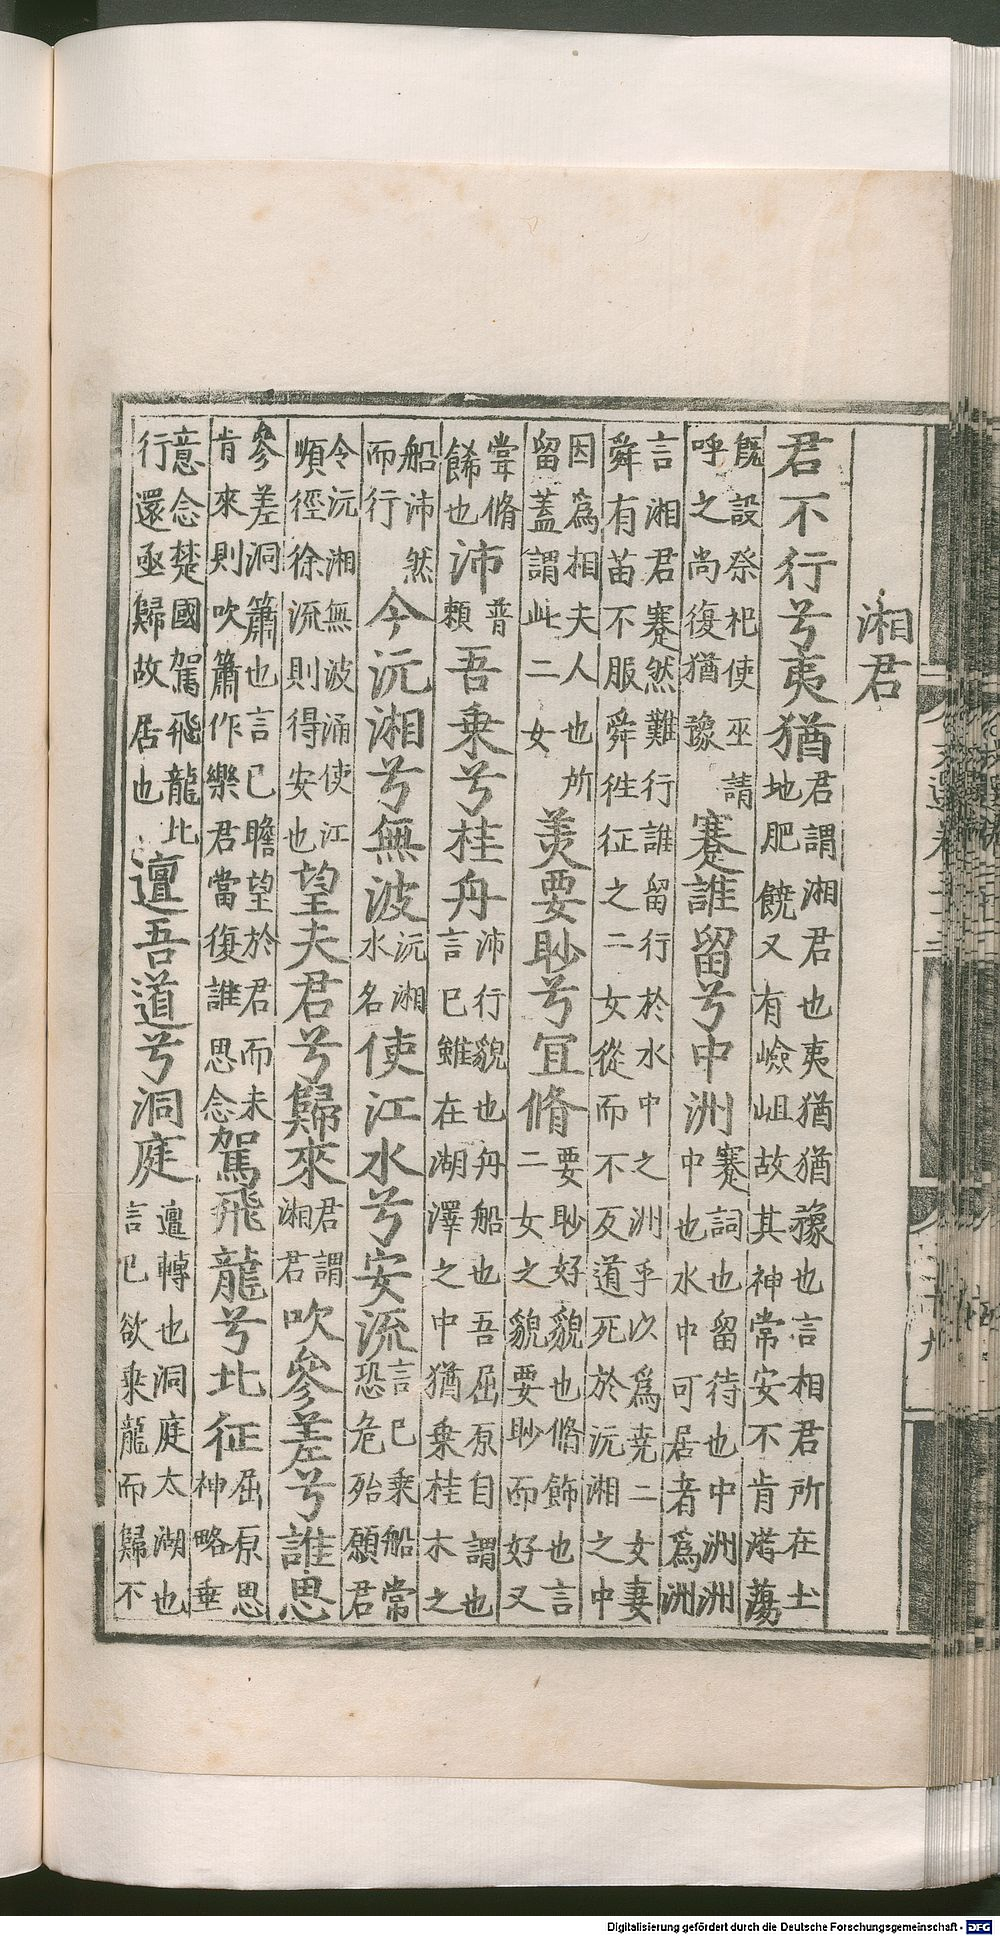 湘君
君不行兮夷猶君謂湘君也夷猶猶豫也言相君所在土地肥饒又有嶮岨故其神常安不肯遊蕩
既設祭祀使巫請呼之尚復猶豫蹇誰留兮中洲蹇詞也留待也中洲洲中也水中可居者爲洲
言湘君蹇然難行誰留行於水中之洲乎以爲堯二女妻舜有苗不服舜徃征之二女從而不反道死於沅湘之中
因爲相夫人也所留蓋謂此二女美要眇兮宜脩要眇好貌也脩飾也言二女之貌要眇而好又
甞脩餙也沛普賴吾乗兮桂舟沛行貌也舟船也吾屈原自謂也言已雖在湖澤之中猶乗桂木之
船沛然而行今沅湘兮無波沅湘水名使江水兮安流言已乗船常恐危殆願君
令沅湘無波涌使江順徑徐流則得安也望夫君兮歸來君謂湘君吹參差兮誰思
參差洞簫也言已瞻望於君而未肯來則吹簫作樂君當復誰思念駕飛龍兮北征屈原思神略垂
意念楚國駕飛龍北行還亟歸故居也邅吾道兮洞庭邅轉也洞庭太湖也言已欲乗龍而歸不
Digitalisierung gefördert durch die Deutsche Forschungsgemeinschaft - DFG